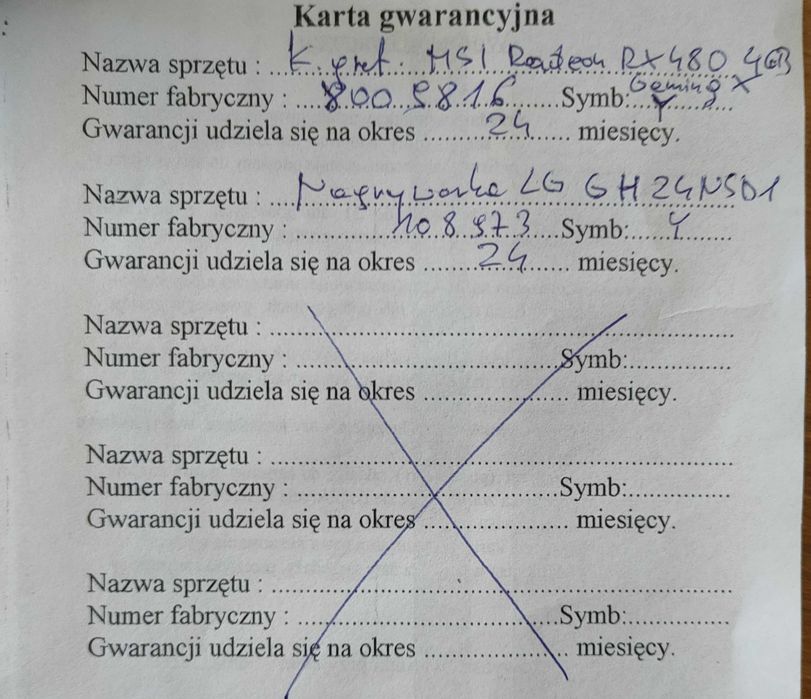 Karta gwarancyjna
Nazwa sprzętu : K. graf. MSI Radeon RX480 4GB
Gaming X
Numer fabryczny : 8005816 Symb: Y
Gwarancji udziela się na okres 24 miesięcy.
Nazwa sprzętu : Nagrywarka LG GH24NSD1
Numer fabryczny : 108973 Symb: Y
Gwarancji udziela się na okres 24 miesięcy.
Nazwa sprzętu :
Numer fabryczny : Symb:
Gwarancji udziela się na okres miesięcy.
Nazwa sprzętu :
Numer fabryczny : Symb:
Gwarancji udziela się na okres miesięcy.
Nazwa sprzętu :
Numer fabryczny : Symb:
Gwarancji udziela się na okres miesięcy.